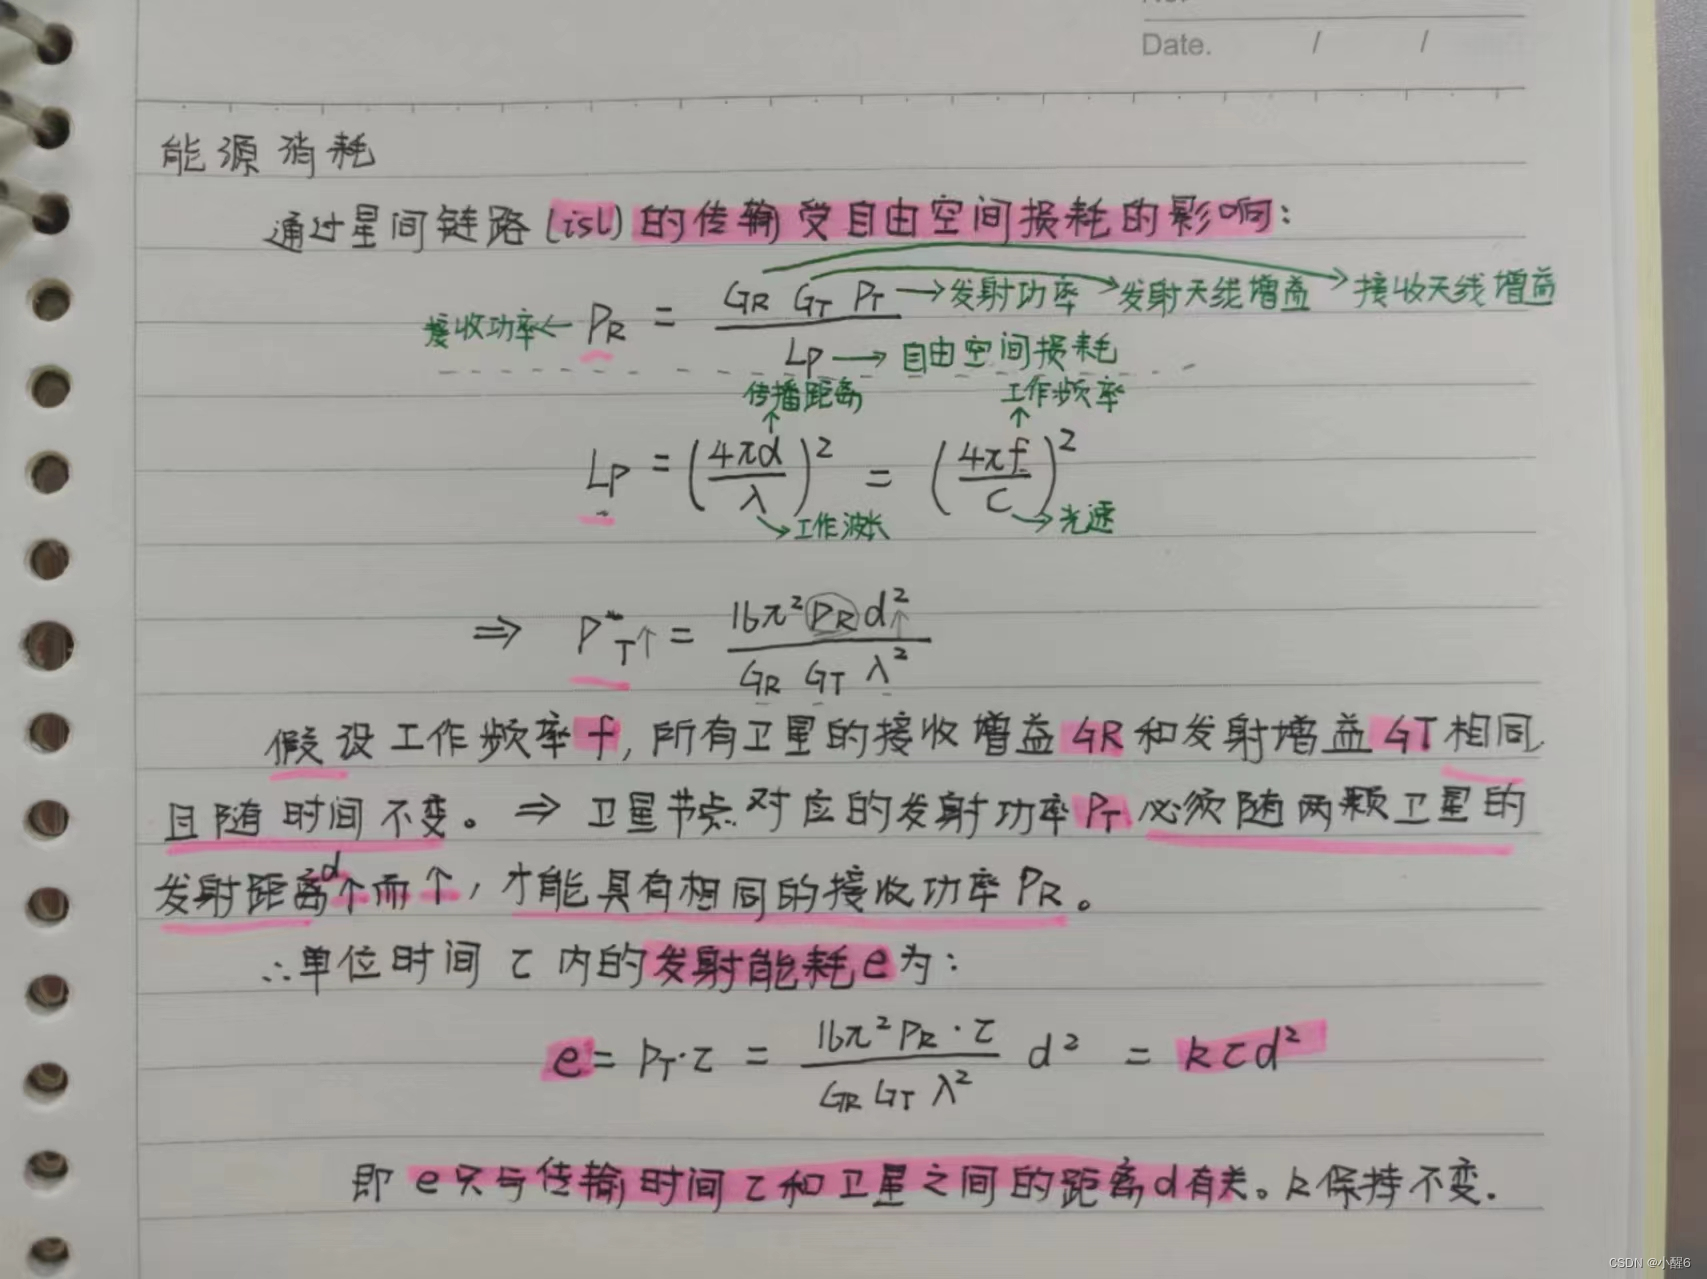 Date. / /
能源消耗
通过星间链路(isl)的传输受自由空间损耗的影响:
接收功率← PR = GR GT PT / LP →发射功率 →发射天线增益 →接收天线增益
→自由空间损耗
传播距离 工作频率
LP = (4πd/λ)² = (4πf/C)²
工作波长 光速
⇒ P*T↑ = 16π²PRd²↑ / GR GT λ²
假设工作频率f,所有卫星的接收增益GR和发射增益GT相同
且随时间不变。⇒ 卫星节点对应的发射功率PT必须随两颗卫星的
发射距离d个而个,才能具有相同的接收功率PR。
∴单位时间 τ 内的发射能耗e为:
e = PT·τ = 16π²PR·τ / GR GT λ² d² = kτd²
即 e只与传输时间τ和卫星之间的距离d有关。k保持不变.
CSDN @小醒6